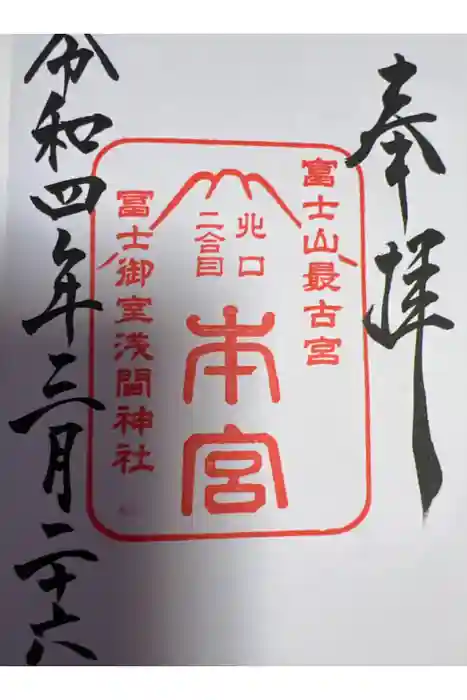 奉拝
富士山最古宮
北口
二合目
本宮
冨士御室浅間神社
令和四年三月二十六